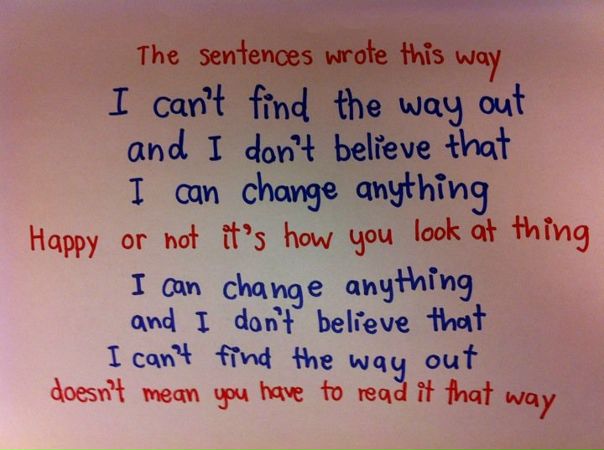 The sentences wrote this way
I can't find the way out
and I don't believe that
I can change anything
Happy or not it's how you look at thing
I can change anything
and I don't believe that
I can't find the way out
doesn't mean you have to read it that way